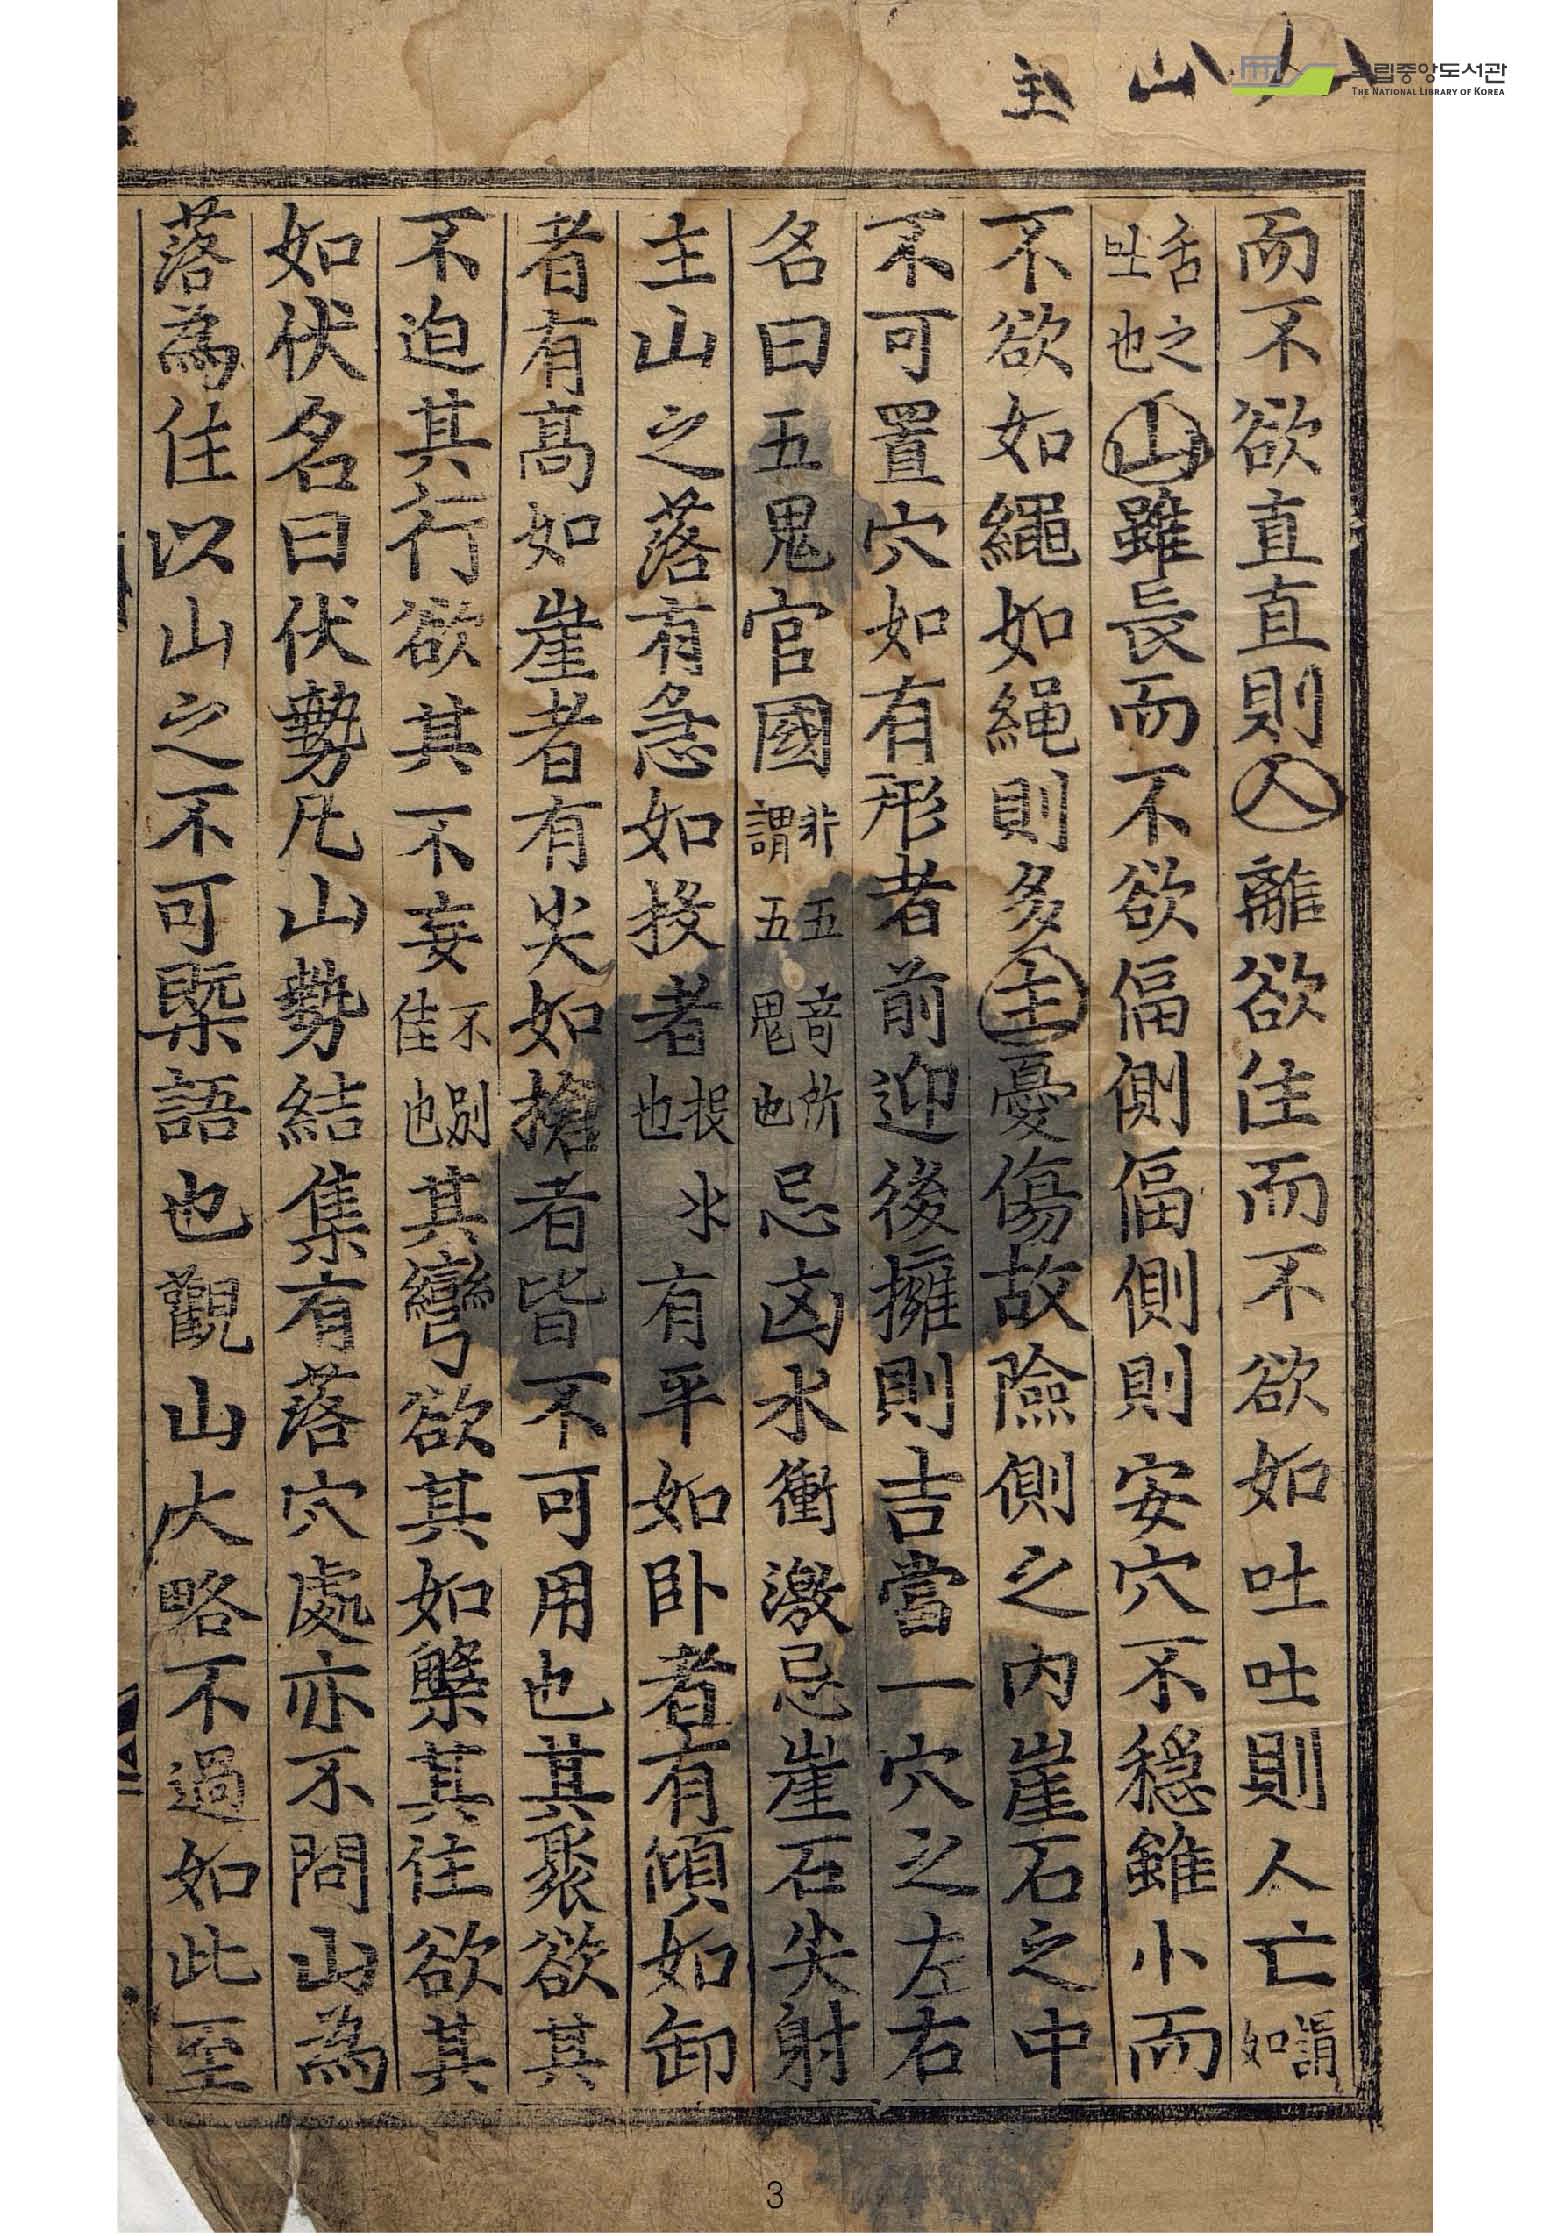 主 山 人
국립중앙도서관
THE NATIONAL LIBRARY OF KOREA
而不欲直直則人離欲住而不欲如吐吐則人亡謂如
舌之吐也山雖長而不欲偪側偪側則安穴不穩雖小而
不欲如繩如繩則多主憂傷故險側之內崖石之中
不可置穴如有形者前迎後擁則吉當一穴之左右
名曰五鬼官國非謂五五音鬼所也忌凶水衝激忌崖石尖射
主山之落有急如投者投水也有平如卧者有傾如卸
者有高如崖者有尖如搶者皆不可用也其聚欲其
不迫其行欲其不妄不別住也其彎欲其如槃其住欲其
如伏名曰伏勢凡山勢結集有落穴處亦不問山為
落為住以山之不可槩語也觀山大略不過如此至
3